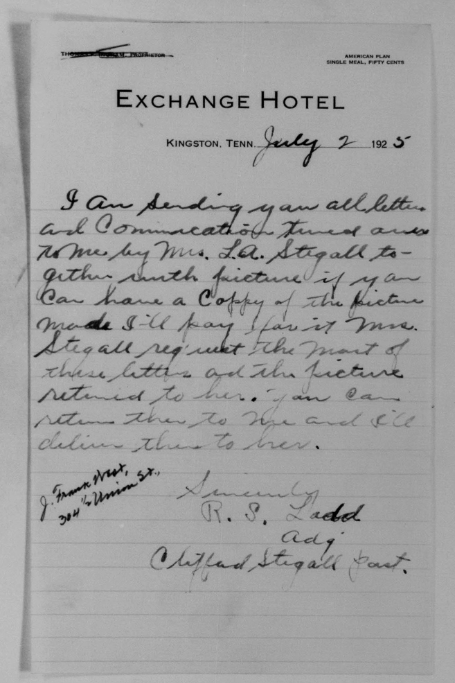 PROPRIETOR
AMERICAN PLAN
SINGLE MEAL, FIFTY CENTS
EXCHANGE HOTEL
KINGSTON, TENN. July 2 1925
I Am Sending you all letters
and Communication turned over
to me by Mrs. L.A. Stegall to-
gether with picture if you
Can have a Coppy of the picture
made I'll pay for it Mrs.
Stegall request the most of
these letters and the picture
returned to her. you can
return them to me and I'll
deliver them to her.
J. Frank West,
304 1/2 Union St.,
Sincerely
R. S. Ladd
Adj
Clifford Stegall Post.